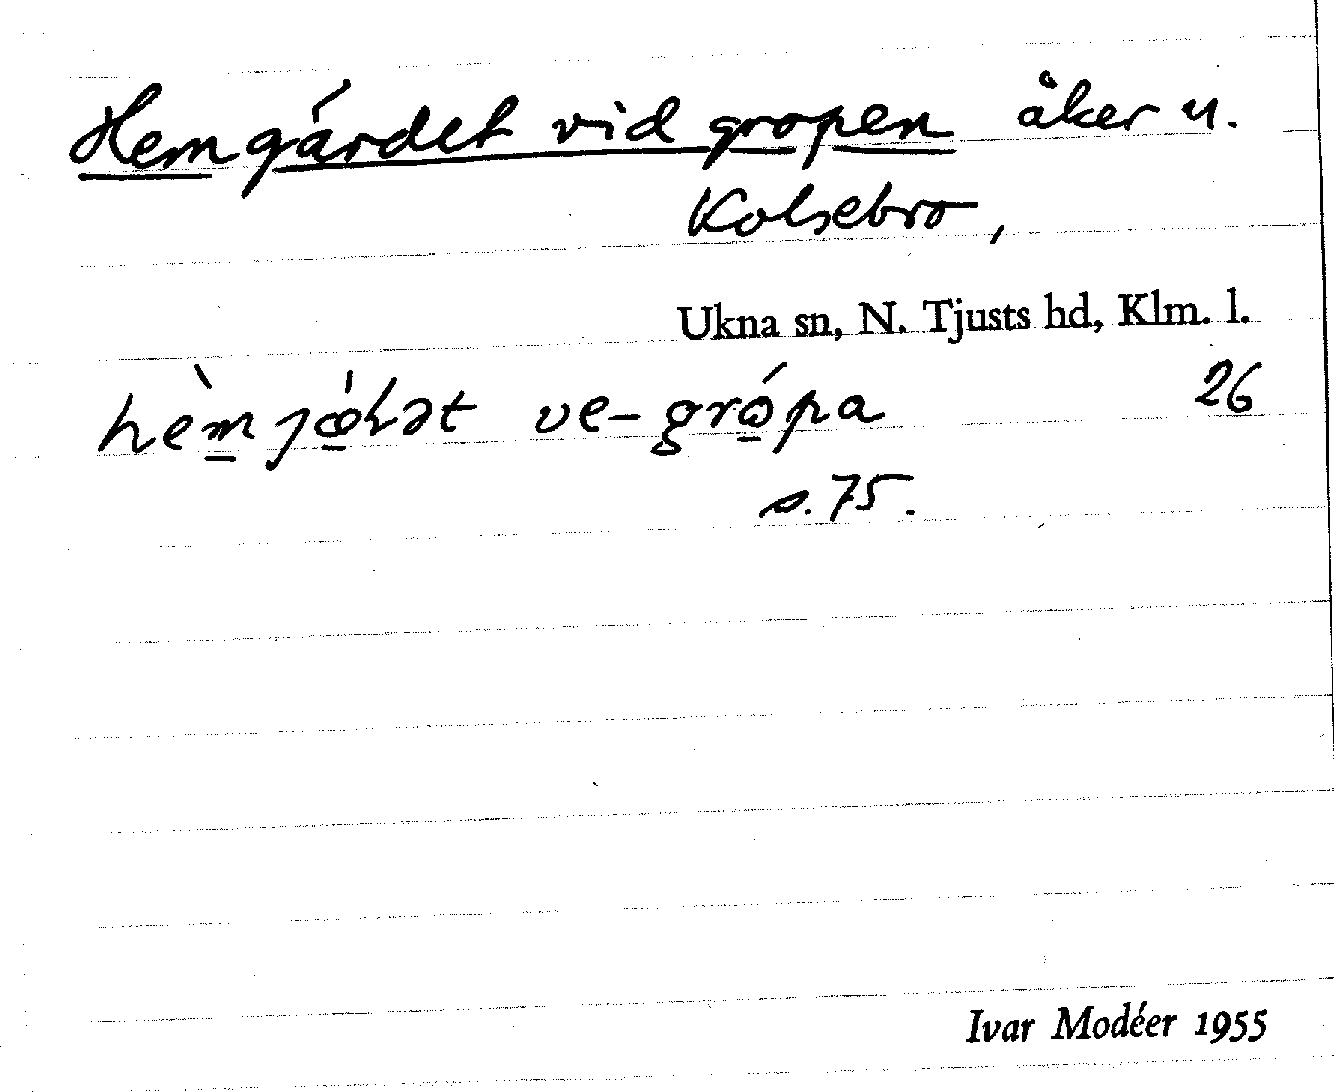 Hemgärdet vid gropen åker u.
Kolsebro,
Ukna sn, N. Tjusts hd, Klm. l.
ve-grópa 26
s. 75.
Ivar Modéer 1955